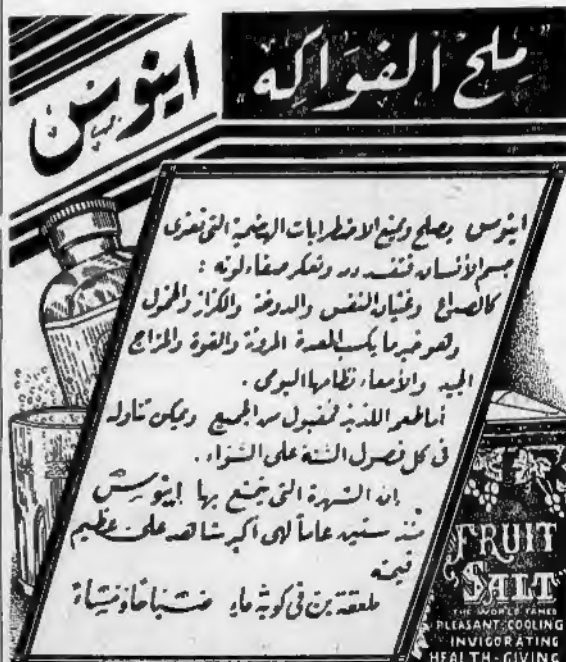 "ملح الفواكه"
اينوس
اينوس يصلح ويمنع الاضطرابات الهضمية التي تعتري
جسم الأنسان فتفسد دمه وتعكر صفاء لونه :
كالصداع وغثيان النفس والدوخة والكزاز والخمول
وهو خير ما يكسب المعدة المرونة والقوة والمزاج
الجيد والأمعاء نظامها اليومي .
أما طعمه اللذيذ فمقبول من الجميع ويمكن تناوله
في كل فصول السنة على السواء .
إن الشهرة التي يتمتع بها اينوس
منذ ستين عاماً لهي أكبر شاهد على عظيم
قيمته
ملعقة بن في كوبة ماء صباحاً ومساءً
FRUIT
SALT
THE WORLD FAMED
PLEASANT·COOLING
INVIGORATING
HEALTH-GIVING